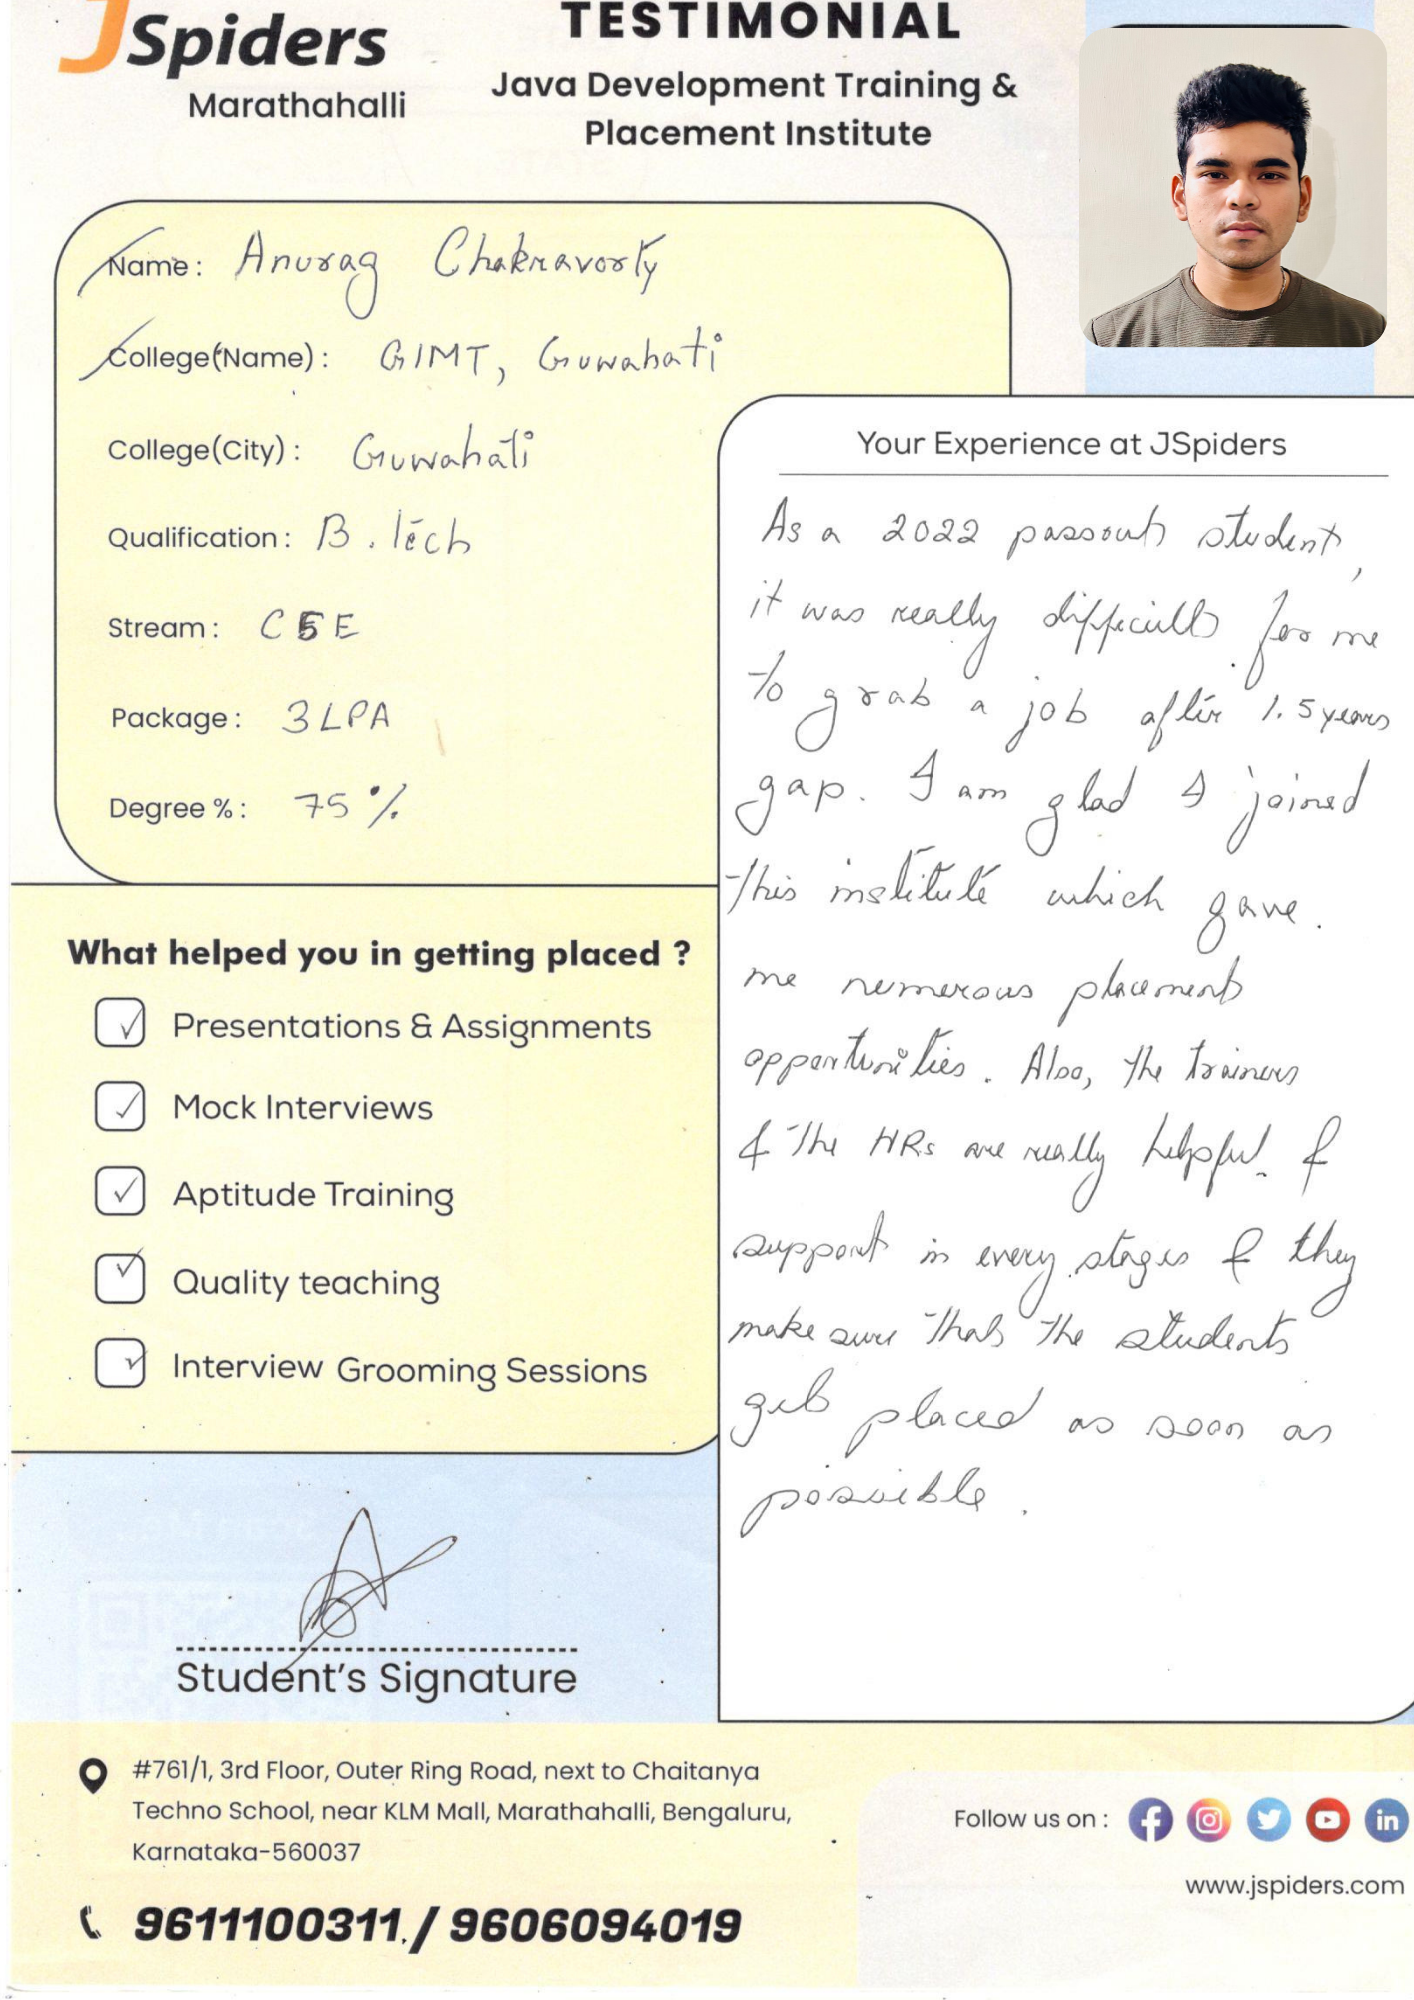 JSpiders
Marathahalli
TESTIMONIAL
Java Development Training &
Placement Institute
Name : Anurag Chakravorty
College(Name) : GIMT, Guwahati
College(City) : Guwahati
Qualification : B.Tech
Stream : CSE
Package : 3LPA
Degree % : 75%
What helped you in getting placed ?
Presentations & Assignments
Mock Interviews
Aptitude Training
Quality teaching
Interview Grooming Sessions
Student's Signature
Your Experience at JSpiders
As a 2022 passout student,
it was really difficult for me
to grab a job after 1.5 years
gap. I am glad I joined
this institute which gave.
me numerous placement
opportunities. Also, the trainers
& the HRs are really helpful &
support in every stages & they
make sure that the students
get placed as soon as
possible.
#761/1, 3rd Floor, Outer Ring Road, next to Chaitanya
Techno School, near KLM Mall, Marathahalli, Bengaluru,
Karnataka-560037
9611100311 / 9606094019
Follow us on :
www.jspiders.com